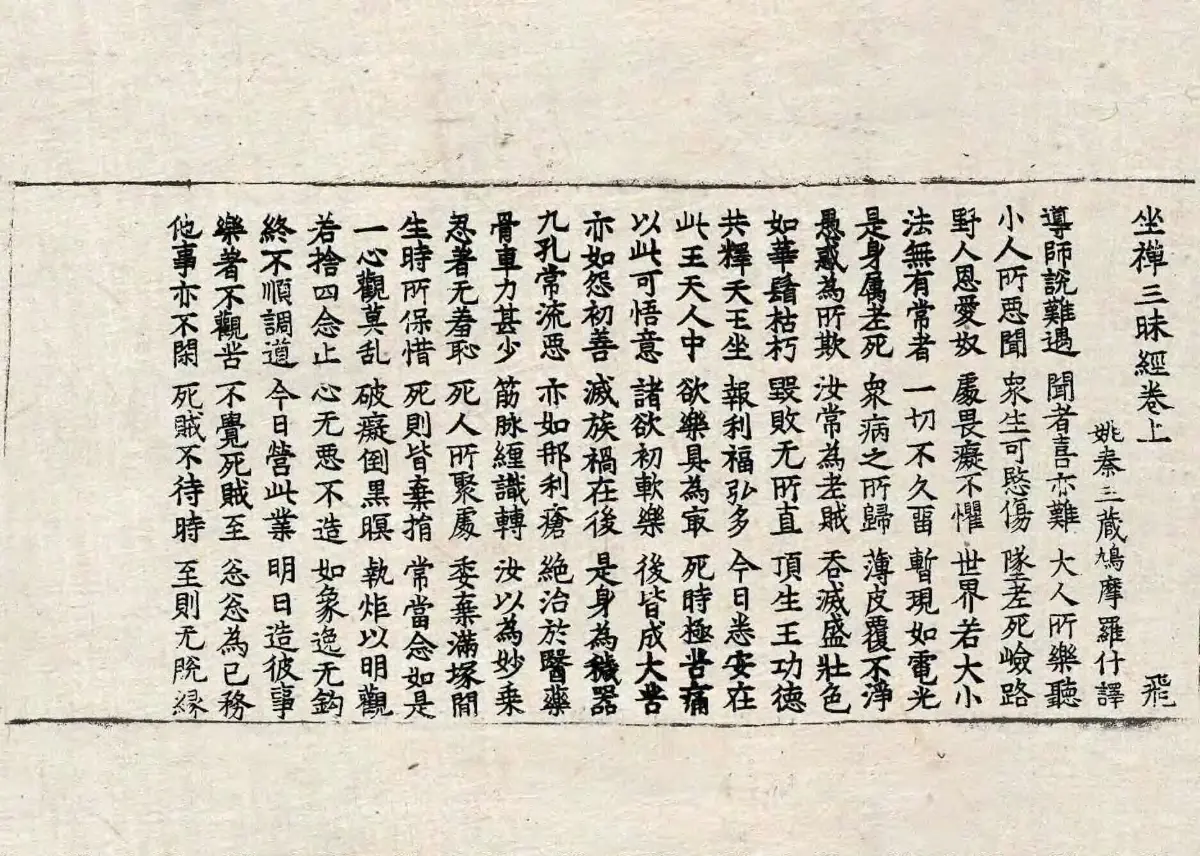 坐禪三昧經卷上 飛
姚秦三蔵鳩摩羅什譯
導師說難遇 聞者喜亦難 大人所樂聽
小人所惡聞 衆生可愍傷 墜老死嶮路
野人恩愛奴 處畏癡不懼 世界若大小
法無有常者 一切不久留 暫現如電光
是身属老死 衆病之所歸 薄皮覆不淨
愚惑為所欺 汝常為老賊 吞滅盛壯色
如華鬘枯朽 毀敗无所直 頂生王功德
共釋天王坐 報利福弘多 今日悉安在
此王天人中 欲樂具為冣 死時極苦痛
以此可悟意 諸欲初軟樂 後皆成大苦
亦如怨初善 滅族禍在後 是身為穢器
九孔常流惡 亦如那利瘡 絶治於醫藥
骨車力甚少 筋脉纏識轉 汝以為妙乗
忍著无羞恥 死人所聚處 委棄滿塚間
生時所保惜 死則皆棄捐 常當念如是
一心觀莫乱 破癡倒黒暝 執炬以明觀
若捨四念止 心无惡不造 如象逸无鈎
終不順調道 今日營此業 明日造彼事
樂著不觀苦 不覺死賊至 忩忩為已務
他事亦不閑 死賊不待時 至則无脫緣